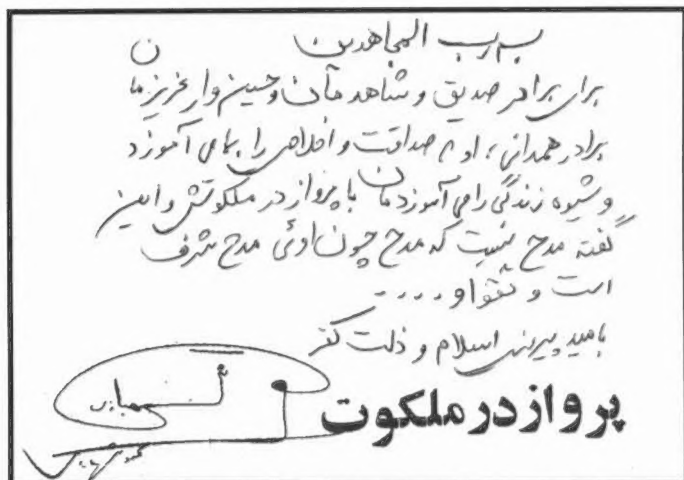 برب المجاهدین
برای برادر صدیق و شاهدمان و حسین وار عزیز ما
برادر همدانی، او که صداقت و اخلاص را بما می آموزد
و شیوه زندگی را می آموزدمان با پرواز در ملکوتش و این
گفته مدح نیست که مدح چون اوئی مدح شرف
است و تقوا و ....
بامید پیروزی اسلام و ذلت کفر
پرواز در ملکوت